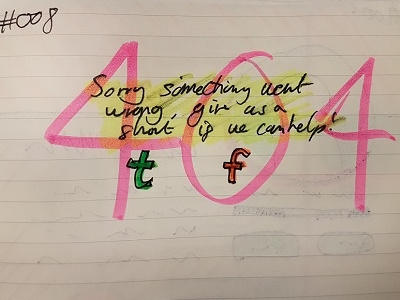 #008
404
Sorry something went
wrong, give us a
shout, if we can help!
t f